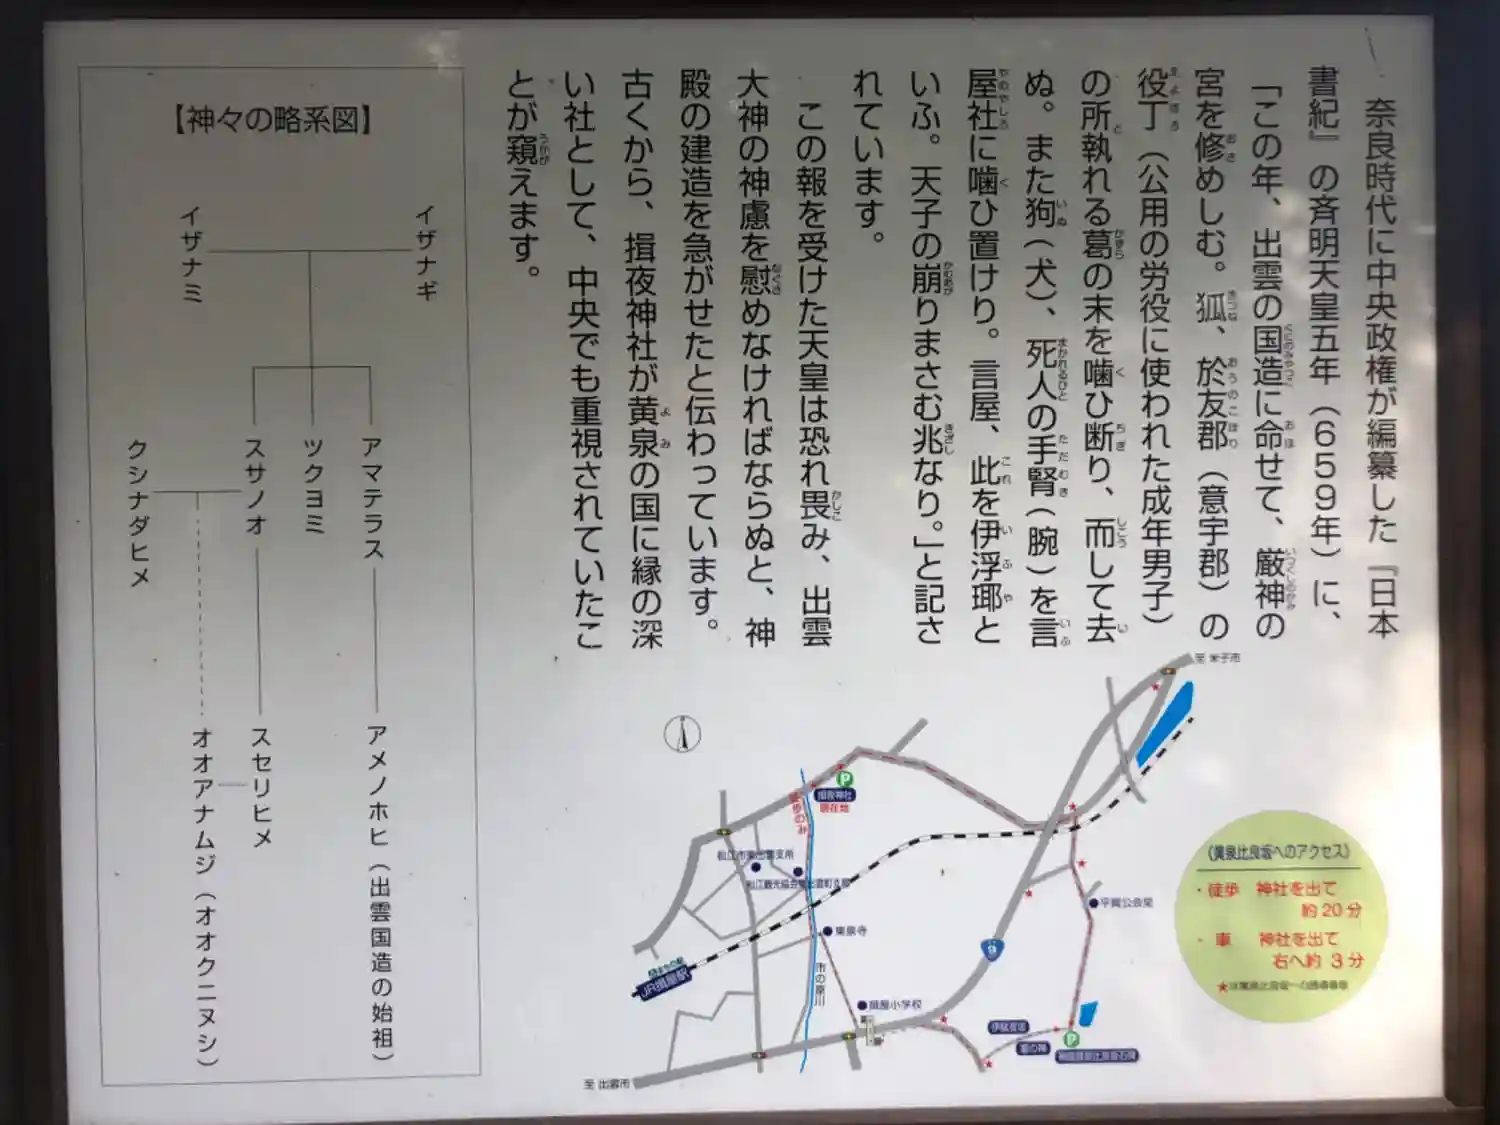 奈良時代に中央政権が編纂した『日本
書紀』の斉明天皇五年（659年）に、
「この年、出雲の国造に命せて、厳神の
宮を修めしむ。狐、於友郡（意宇郡）の
役丁（公用の労役に使われた成年男子）
の所執れる葛の末を噛ひ断り、而して去
ぬ。また狗（犬）、死人の手腎（腕）を言
屋社に噛ひ置けり。言屋、此を伊浮瑘と
いふ。天子の崩りまさむ兆なり。」と記さ
れています。
この報を受けた天皇は恐れ畏み、出雲
大神の神慮を慰めなければならぬと、神
殿の建造を急がせたと伝わっています。
古くから、揖夜神社が黄泉の国に縁の深
い社として、中央でも重視されていたこ
とが窺えます。
【神々の略系図】
イザナギ
イザナミ
アマテラス
ツクヨミ
スサノオ
クシナダヒメ
アメノホヒ（出雲国造の始祖）
スセリヒメ
オオアナムジ（オオクニヌシ）
至 米子市
P
揖夜神社
現在地
徒歩のみ
松江市東出雲支所
平賀公会堂
東泉寺
市の原川
9
JR揖屋駅
揖屋小学校
伊賦夜坂
塞の神
P
至 出雲市
《黄泉比良坂へのアクセス》
・徒歩 神社を出て
約20分
・車 神社を出て
右へ約 3分